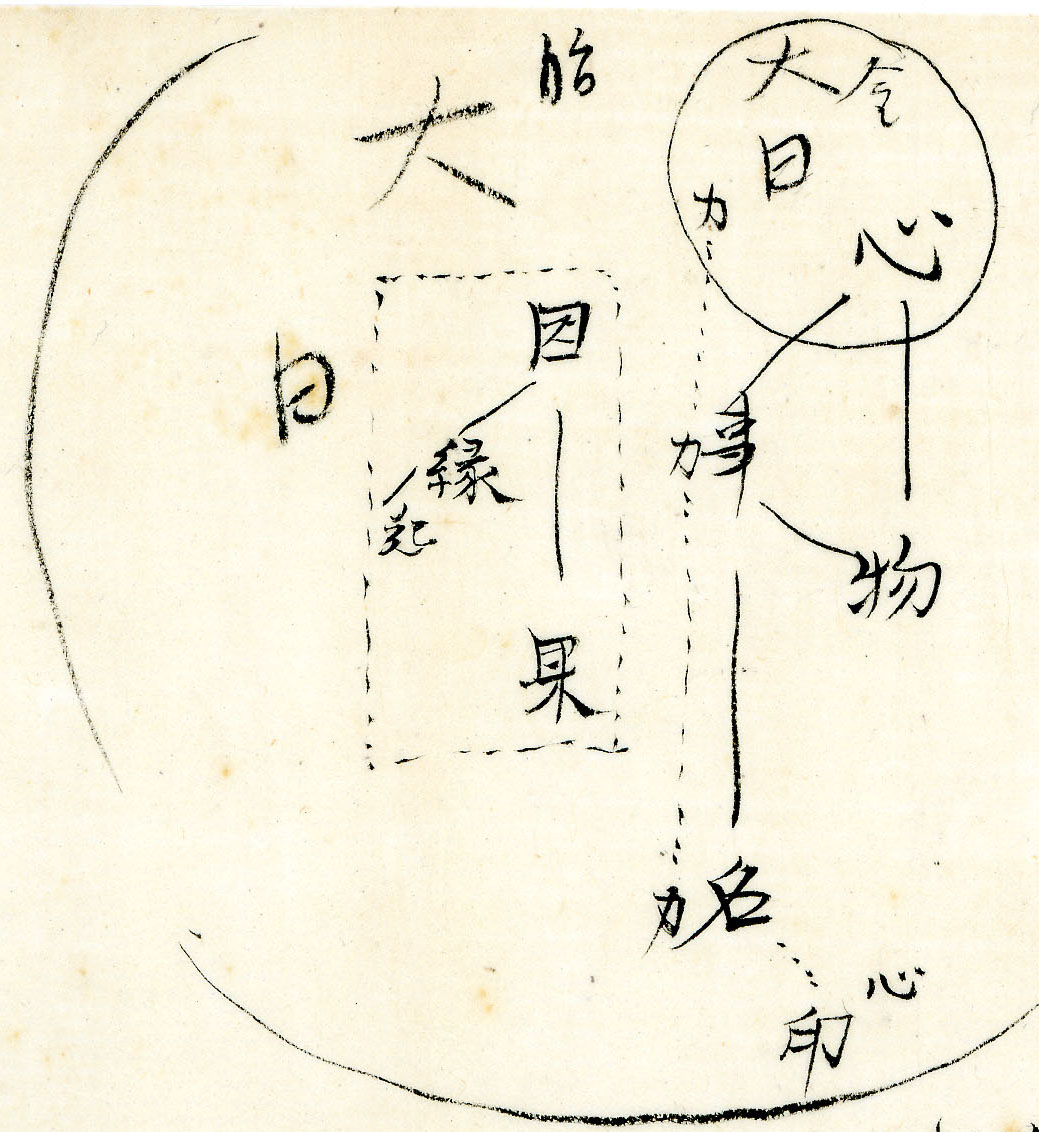 金
大日
心
力
物
事
力
名
力
心
印
胎
大日
因
縁
起
果